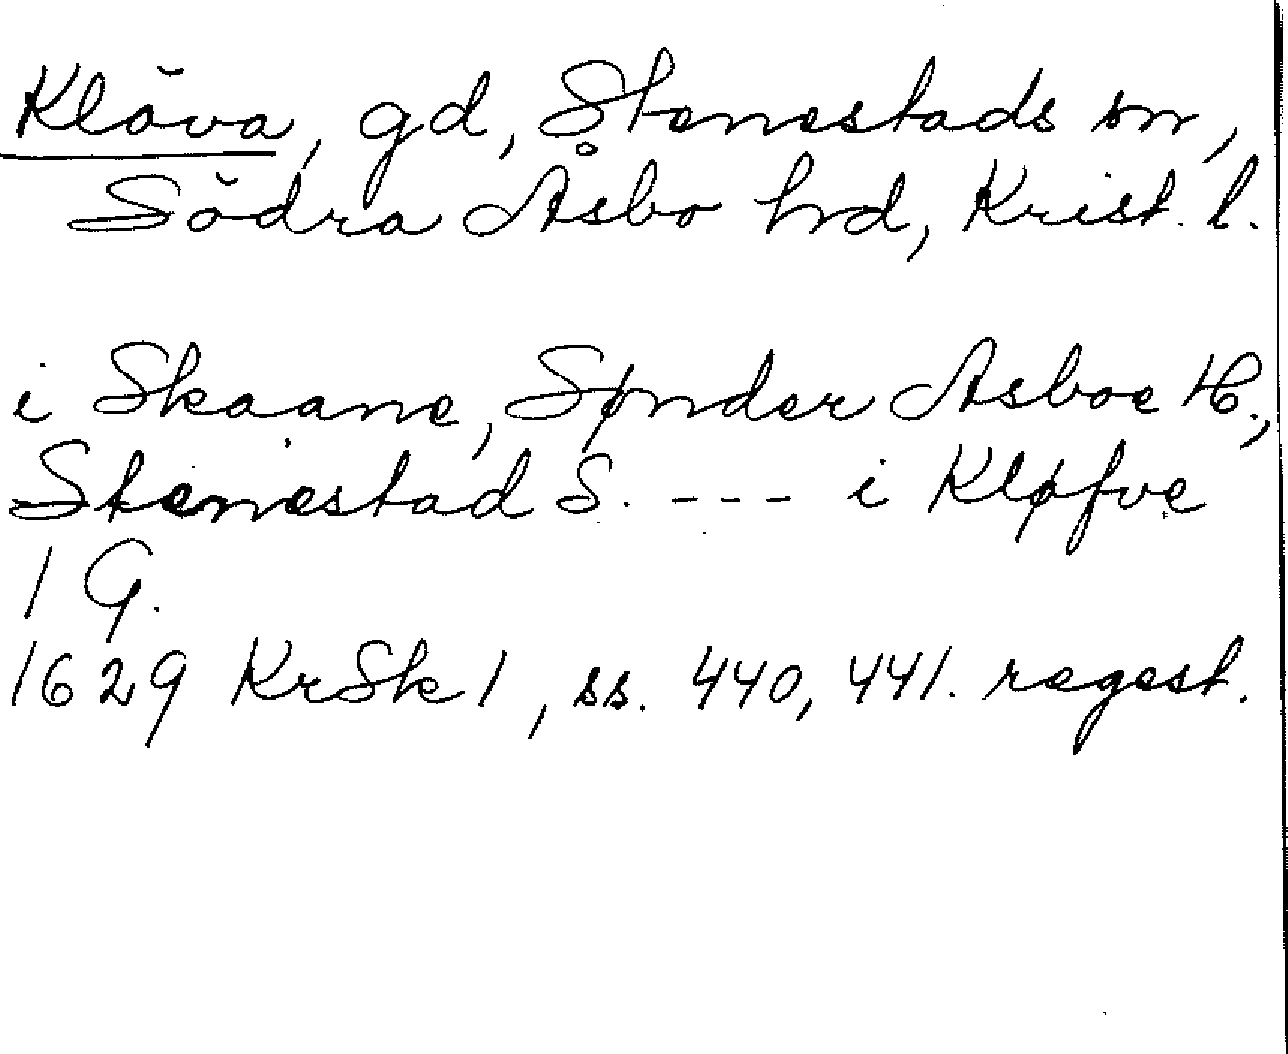 Klöva, gd, Stenestads sn,
Södra Åsbo hrd, Krist. l.
i Skaane, Sønder Asboe H.,
Stenestad S. --- i Kløfve
1 G.
1629 KrSk 1, ss. 440, 441. regest.